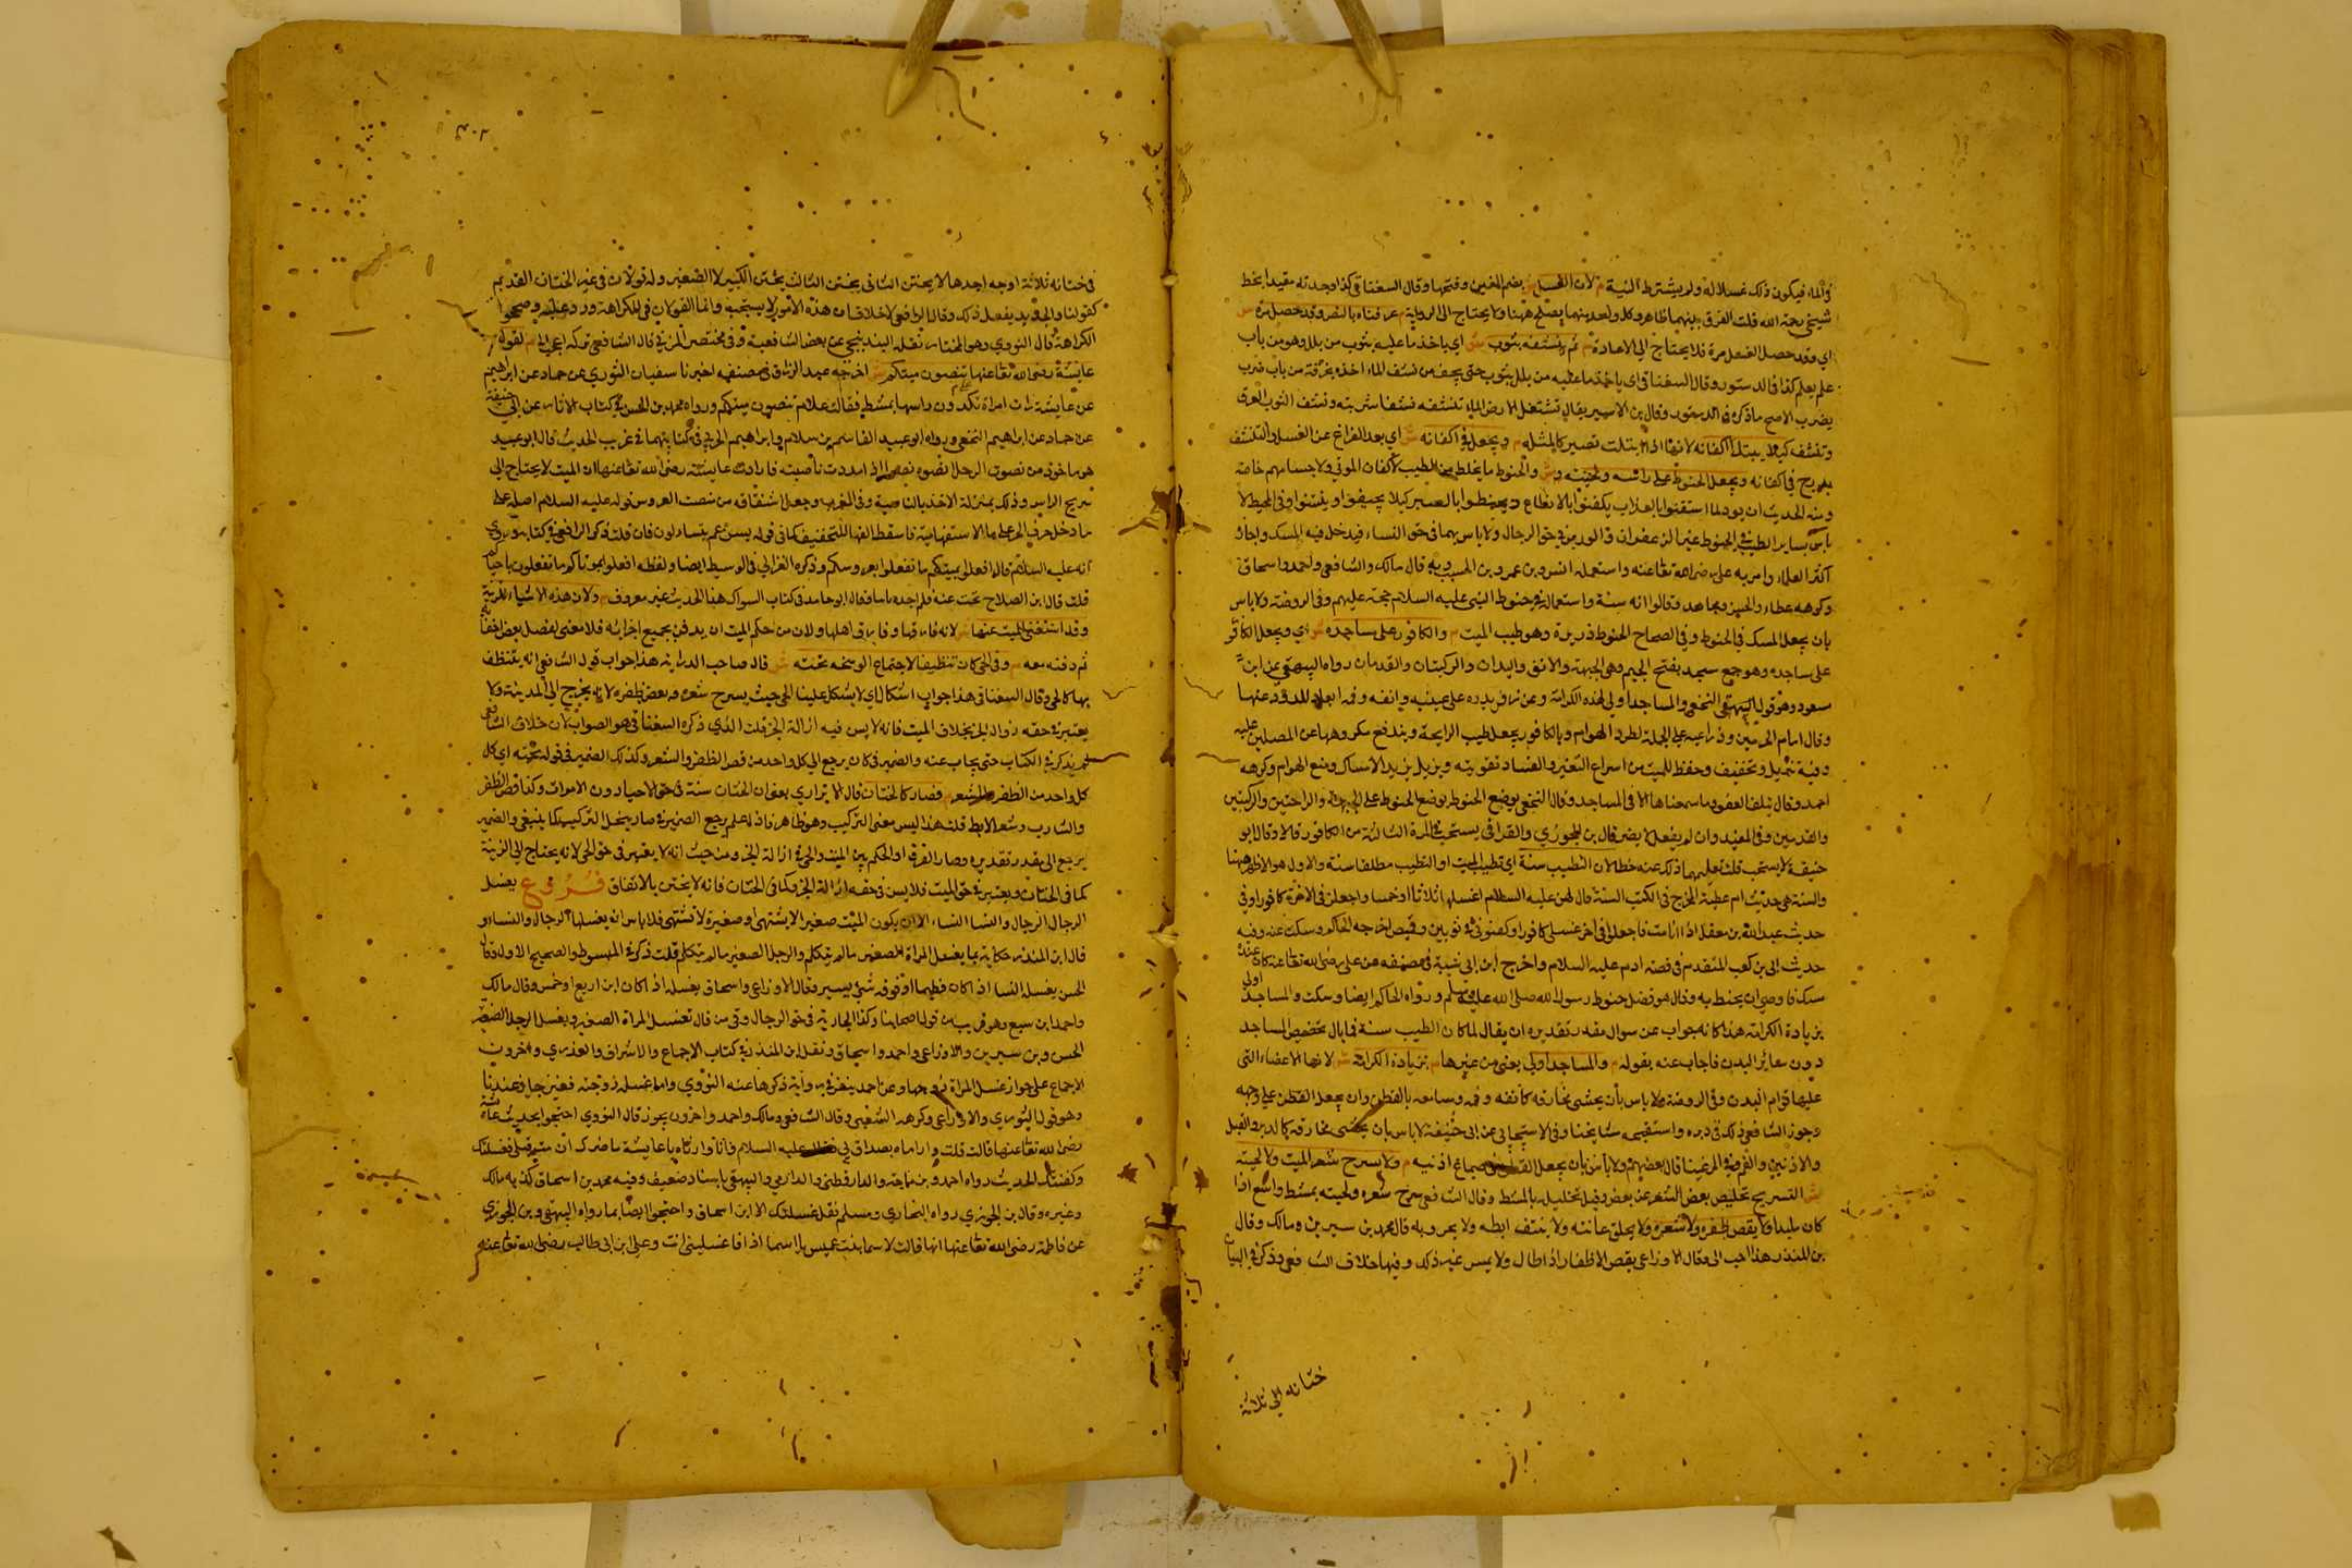 في الماء فيكون ذلك غسلا له ولم يشترط النية م لان الغسل ش بضم الغين وفتحها وقال السغناقي كذا وجدته مقيدا بخط
شيخي رحمه الله قلت الفرق بينهما ظاهر وكل واحد منهما يصلح ههنا ولا يحتاج الى الرواية م عرفناه بالنص وقد حصل مرة ش
اي وقد حصل الغسل مرة فلا يحتاج الى الاعادة م ثم ينشفه بثوب ش اي ياخذ ما عليه بثوب من بلل وهو من باب
علم يعلم كذا في الدستور وقال السغناقي اي ياخذ ما عليه من بلل بثوب حتى يجف من نشف الماء اخذه بخرقة من باب ضرب
يضرب الاصح ما ذكره في الدستور وقال بن الاثير يقال نشفت الارض الماء تنشفه نشفا شربته ونشف الثوب العرق
وتنشفه كيلا يبتل اكفانه لانها اذا ابتلت تصير كالمثلة م ويجعل في اكفانه ش اي بعد الفراغ عن الغسل والتنشف
يدرج في اكفانه ويجعل الحنوط على راسه ولحيته ش والحنوط ما يخلط من الطيب لاكفان الموتى ولاجسامهم خاصة
ومنه الحديث ان ثمود لما استيقنوا بالعذاب تكفنوا بالانطاع وتحنطوا بالصبر كيلا يجيفوا وينتنوا وفي المحيط لا
باس بساير الطيب في الحنوط غير الزعفران والورس في حق الرجال ولا باس بهما في حق النساء فيدخل فيه المسك واجازه
اكثر العلماء وامر به علي رضي الله تعالى عنه واستعمله انس وبن عمر وبن المسيب وبه قال مالك والشافعي واحمد واسحاق
وكرهه عطاء والحسن ومجاهد وقالوا انه ميتة واستعماله في حنوط النبي عليه السلام حجة عليهم وفي الروضة ولا باس
بان يجعل المسك في الحنوط وفي الصحاح الحنوط ذريرة وهو طيب الميت م والكافور على مساجده ش اي ويجعل الكافور
على مساجده وهو جمع مسجد بفتح الجيم وهي الجبهة والانف واليدان والركبتان والقدمان رواه البيهقي عن ابن
مسعود وهو قول النخعي والمساجد اولى لهذه الكرامة وعن زفر يذره على عينيه وانفه وفمه ابعاد للدود عنها
وقال امام الحرمين وذراعيه على الجملة لطرد الهوام وبالكافور يجعل طيب الرايحة ويندفع مكروهها عن المصلين عليه
وفيه تبريد وتجفيف وحفظ للميت من اسراع التغير والفساد تقويته ويزيل يزيد الامساك ومنع الهوام وكرهه
احمد وقال يتلف العضو وما سمعناها الا في المساجد وقال النخعي يوضع الحنوط على الجبهة والراحتين والركبتين
والقدمين وفي المفيد وان لم يفعل لا يضر قال بن الجوزي والقرافي يستحب في المرة الثالثة من الكافور قالا وقال ابو
حنيفة لا يستحب قلت نقلهما ذلك عنه خطا لان التطيب سنة اي تطييب الميت او التطيب مطلقا سنة والاول هو الاظهر ههنا
والسنة هي حديث ام عطية المخرج في الكتب الستة قال لهن عليه السلام اغسلنها ثلاثا او خمسا واجعلن في الاخرة كافورا وفي
حديث عبد الله بن مغفل اذا انا مت فاجعلوا في اخر غسلي كافورا وكفنوني في ثوبين وقميص اخرجه الحاكم وسكت عنه وفيه
حديث ابي بن كعب المتقدم في قصة ادم عليه السلام واخرج ابن ابي شيبة في مصنفه عن علي رضي الله تعالى عنه كان عنده
مسك فاوصى ان يحنط به وقال هو فضل حنوط رسول الله صلى الله عليه وسلم ورواه الحاكم ايضا وسكت والمساجد اولى
بزيادة الكرامة هذا كانه جواب عن سوال مقدر تقديره ان يقال لما كان الطيب سنة فما بال تخصيص المساجد
دون سائر البدن فاجاب عنه بقوله م والمساجد اولى يعني من غيرها م بزيادة الكرامة ش لانها الاعضاء التي
عليها قوام البدن وفي الروضة ولا باس بأن يحشى مخارقه كانفه وفمه ومسامعه بالقطن وان يجعل القطن على وجهه
وجوز الشافعي ذلك في دبره واستقبحه مشايخنا وفي الاسبيجابي عن ابي حنيفة لا باس بان يحشى مخارقه كالدبر والقبل
والاذنين والفم وفي المرغيناني قال بعضهم ولا بأس بان يجعل القطن في صماخ اذنيه م ولا يسرح شعر الميت ولا لحيته
ش التسريح تخليص بعض الشعر عن بعض وقيل تخليله بالمشط وقال الشافعي يسرح شعره ولحيته بمشط واسع اذا
كان ملبدا م ولا يقص ظفره ولا شعره ولا يحلق عانته ولا ينتف ابطه ولا يمر وبه قال محمد بن سيرين ومالك وقال
بن المنذر هذا احب الي وقال الاوزاعي يقص الاظفار اذا طال ولا يمس غير ذلك وفيها خلاف الشافعي وذكر في البيان
ختانه الى ثلاثة
في ختانه ثلاثة اوجه احدها لا يختن الثاني يختن الثالث يختن الكبير لا الصغير وله قولان في غير الختان القديم
كقولنا والجديد يفعل ذلك وقال الرافعي لا خلاف ان هذه الامور لا يستحب وانما القولان في الكراهة ورد عليه وصححوا
الكراهة قال النووي وهو المختار نقله البندنيجي عن بعض الشافعية وفي مختصر المزني قال الشافعي تركه اعجب الي م لقول
عايشة رضي الله تعالى عنها تنصون ميتكم ش اخرجه عبد الرزاق في مصنفه اخبرنا سفيان الثوري عن حماد عن ابراهيم
عن عايشة رات امراة تكدون راسها بمشط فقالت علام تنصون ميتكم ورواه محمد بن الحسن في كتاب الاثار عن ابي حنيفة
عن حماد عن ابراهيم النخعي ورواه ابو عبيد القاسم بن سلام وابراهيم الحربي في كتابيهما في غريب الحديث قال ابو عبيد
هو ماخوذ من نصوت الرجل انصوه نصوا اذا مددت ناصيته فارادت عايشة رضي الله تعالى عنها ان الميت لا يحتاج الى
تسريح الراس وذلك بمنزلة الاخذ بالناصية وفي المغرب وجعل اشتقاقه من منصة العروس قوله عليه السلام اصله على
ما دخل حرف الجر على ما الاستفهامية فاسقط الفها للتخفيف كما في قوله عم يتساءلون فان قلت ذكر الرافعي في كتابه روي
انه عليه السلام قال افعلوا بميتكم ما تفعلوا بعروسكم وذكره الغزالي في الوسيط ايضا ولفظه افعلوا بموتاكم ما تفعلون باحياكم
قلت قال ابن الصلاح بحثت عنه فلم اجده وقال ابو حامد في كتاب السواك هذا الحديث غير معروف م ولان هذه الاشياء للزينة
وقد استغنى الميت عنها ش لانه فارقها وفارق اهلها ولان من حكم الميت ان يدفن بجميع اجزائه فلا معنى لفصل بعض اجزائه
ثم دفنه معه م وفي الحي كان تنظيفا لاجتماع الوسخ تحته ش قال صاحب الدراية هذا جواب قول الشافعي انه يتنظف
بها كالحي وقال السغناقي هذا جواب اشكال اي لا يشكل علينا الحي حيث يسرح شعره ويقص ظفره لانه يخرج الى المدينة ولا
يعتبر في حقه زوال الجزء بخلاف الميت فانه لا يسن فيه ازالة الجزء قلت الذي ذكره السغناقي هو الصواب لان خلاف الشافعي
لم يذكر في الكتاب حتى يجاب عنه والضمير في كان يرجع الى كل واحد من قص الظفر والشعر وكذلك الضمير في قوله تحته اي كل
كل واحد من الظفر والشعر م فصار كالختان قال الاترازي يعني ان الختان سنة في حق الاحياء دون الاموات وكذا قص الظفر
والشارب وشعر الابط قلت هذا ليس معنى التركيب وهو ظاهر فاذا علم يرجع الضمير في صار ينحل التركيب كما ينبغي والضمير
يرجع الى مقدر تقديره وصار الفرق او الحكم بين الميت والحي في ازالة الجزء ومن حيث انه لا يعتبر في حق الحي لانه يحتاج الى الزينة
كما في الختان ويعتبر في حق الميت فلا يسن في حقه ازالة الجزء كما في الختان فانه لا يختن بالاتفاق فروع يغسل
الرجال الرجال والنسا النساء الا ان يكون الميت صغير الا يشتهى او صغيرة لا تشتهى فلا باس ان يغسلها الرجال والنساء و
قال ابن المنذر حكاية بما يغسل المراة الصغير مالم يتكلم والرجل الصغير مالم يتكلم قلت ذكره في المبسوط والصحيح الاول وقال
الحسن يغسله النسا اذا كان فطيما او فوقه شيء يسير وقال الاوزاعي واسحاق يغسله اذا كان ابن اربع او خمس وقال مالك
واحمد ابن سبع وهو قريب من قول اصحابنا وكذا الجارية في حق الرجال وقي من قال تغسل المراة الصغير ويغسل الرجل الصغيرة
الحسن وبن سيرين والاوزاعي واحمد واسحاق ونقل ابن المنذر في كتاب الاجماع والاشراف والعبدري واخرون
الاجماع على جواز غسل المراة زوجها وعن احمد ينفر في رواية ذكرها عنه النووي واما غسله زوجته فغير جايز عندنا
وهو قول الثوري والاوزاعي وكرهه الشعبي وقال الشافعي ومالك واحمد واخرون يجوز قال النووي احتجوا بحديث عايشة
رضي الله تعالى عنها قالت قلت واراساه عليه السلام فانا وارأساه يا عايشة ما ضرك ان مت قبلي فغسلتك
وكفنتك الحديث رواه احمد وبن ماجة والدارقطني والدارمي والبيهقي باسناد ضعيف وفيه محمد بن اسحاق كذبه مالك
وغيره وقال بن الجوزي رواه البخاري ومسلم نقل غسلتك الا ابن اسحاق واحتجوا ايضا بما رواه البيهقي وبن الجوزي
عن فاطمة رضي الله تعالى عنها انها قالت لاسما بنت عميس يا اسما اذا انا غسليني انت وعلي ابن ابي طالب رضي الله تعالى عنه